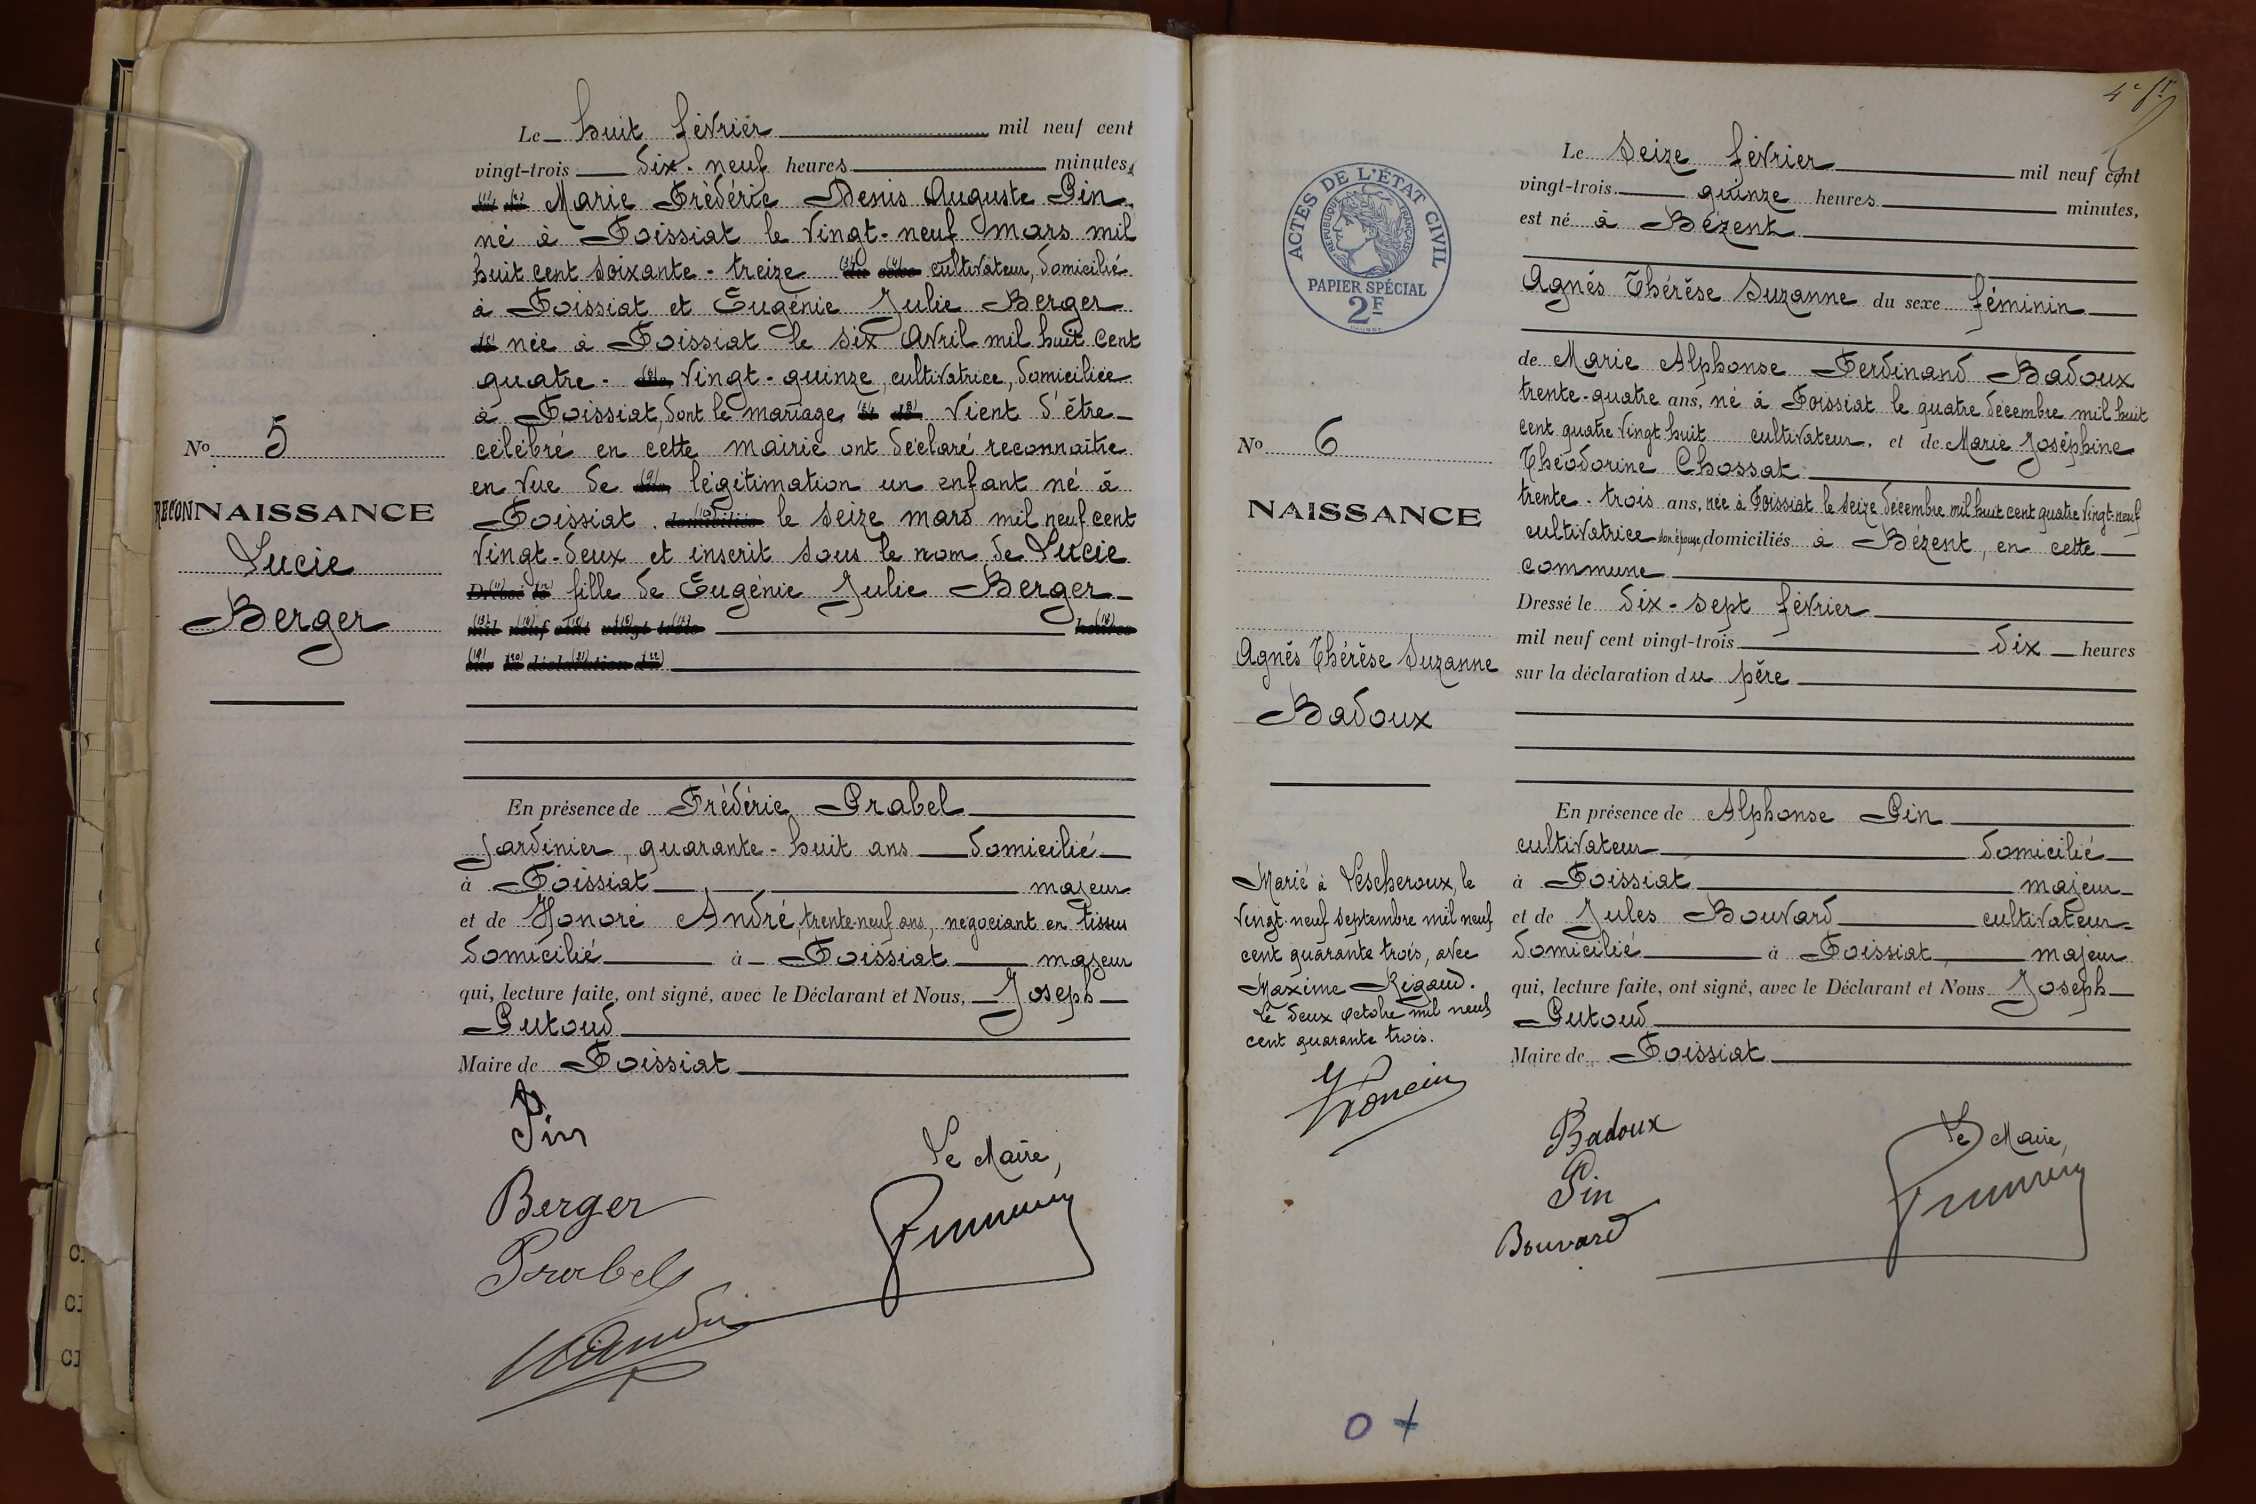 Le huit février mil neuf cent
vingt-trois dix-neuf heures minutes,
Marie Frédéric Denis Auguste Pin
né à Foissiat le vingt-neuf mars mil
huit cent soixante-treize cultivateur, domicilié
à Foissiat et Eugénie Julie Berger
née à Foissiat le six avril mil huit cent
quatre-vingt-quinze, cultivatrice, domiciliée
à Foissiat, dont le mariage vient d'être
célébré en cette mairie ont déclaré reconnaître
en vue de légitimation un enfant né à
Foissiat le seize mars mil neuf cent
vingt-deux et inscrit sous le nom de Lucie
fille de Eugénie Julie Berger
No 5
RECONNAISSANCE
Lucie
Berger
En présence de Frédéric Prabel
jardinier, quarante-huit ans domicilié
à Foissiat majeur
et de Honoré André, trente-neuf ans, négociant en tissus
domicilié à Foissiat majeur
qui, lecture faite, ont signé, avec le Déclarant et Nous, Joseph
Putoud
Maire de Foissiat
Pin
Berger
Prabel
Le Maire,
4e ft
ACTES DE L'ÉTAT CIVIL
RÉPUBLIQUE FRANÇAISE
PAPIER SPÉCIAL
2F
Le seize février mil neuf cent
vingt-trois quinze heures minutes,
est né à Bézent
Agnés Thérèse Suzanne du sexe féminin
de Marie Alphonse Ferdinand Badoux
trente-quatre ans, né à Foissiat le quatre décembre mil huit
cent quatre vingt huit cultivateur, et de Marie Joséphine
Théodorine Chossat
trente-trois ans, née à Foissiat le seize décembre mil huit cent quatre vingt-neuf
cultivatrice son épouse, domiciliés à Bézent, en cette
commune
Dressé le dix-sept février
mil neuf cent vingt-trois dix heures
sur la déclaration du père
No 6
NAISSANCE
Agnés Thérèse Suzanne
Badoux
En présence de Alphonse Pin
cultivateur domicilié
à Foissiat majeur
et de Jules Bouvard cultivateur
domicilié à Foissiat, majeur
qui, lecture faite, ont signé, avec le Déclarant et Nous Joseph
Putoud
Maire de Foissiat
Marié à Lescheroux, le
vingt-neuf septembre mil neuf
cent quarante trois, avec
Maxime Rigaud.
Le deux octobre mil neuf
cent quarante trois.
Badoux
Pin
Bouvard
Le Maire,